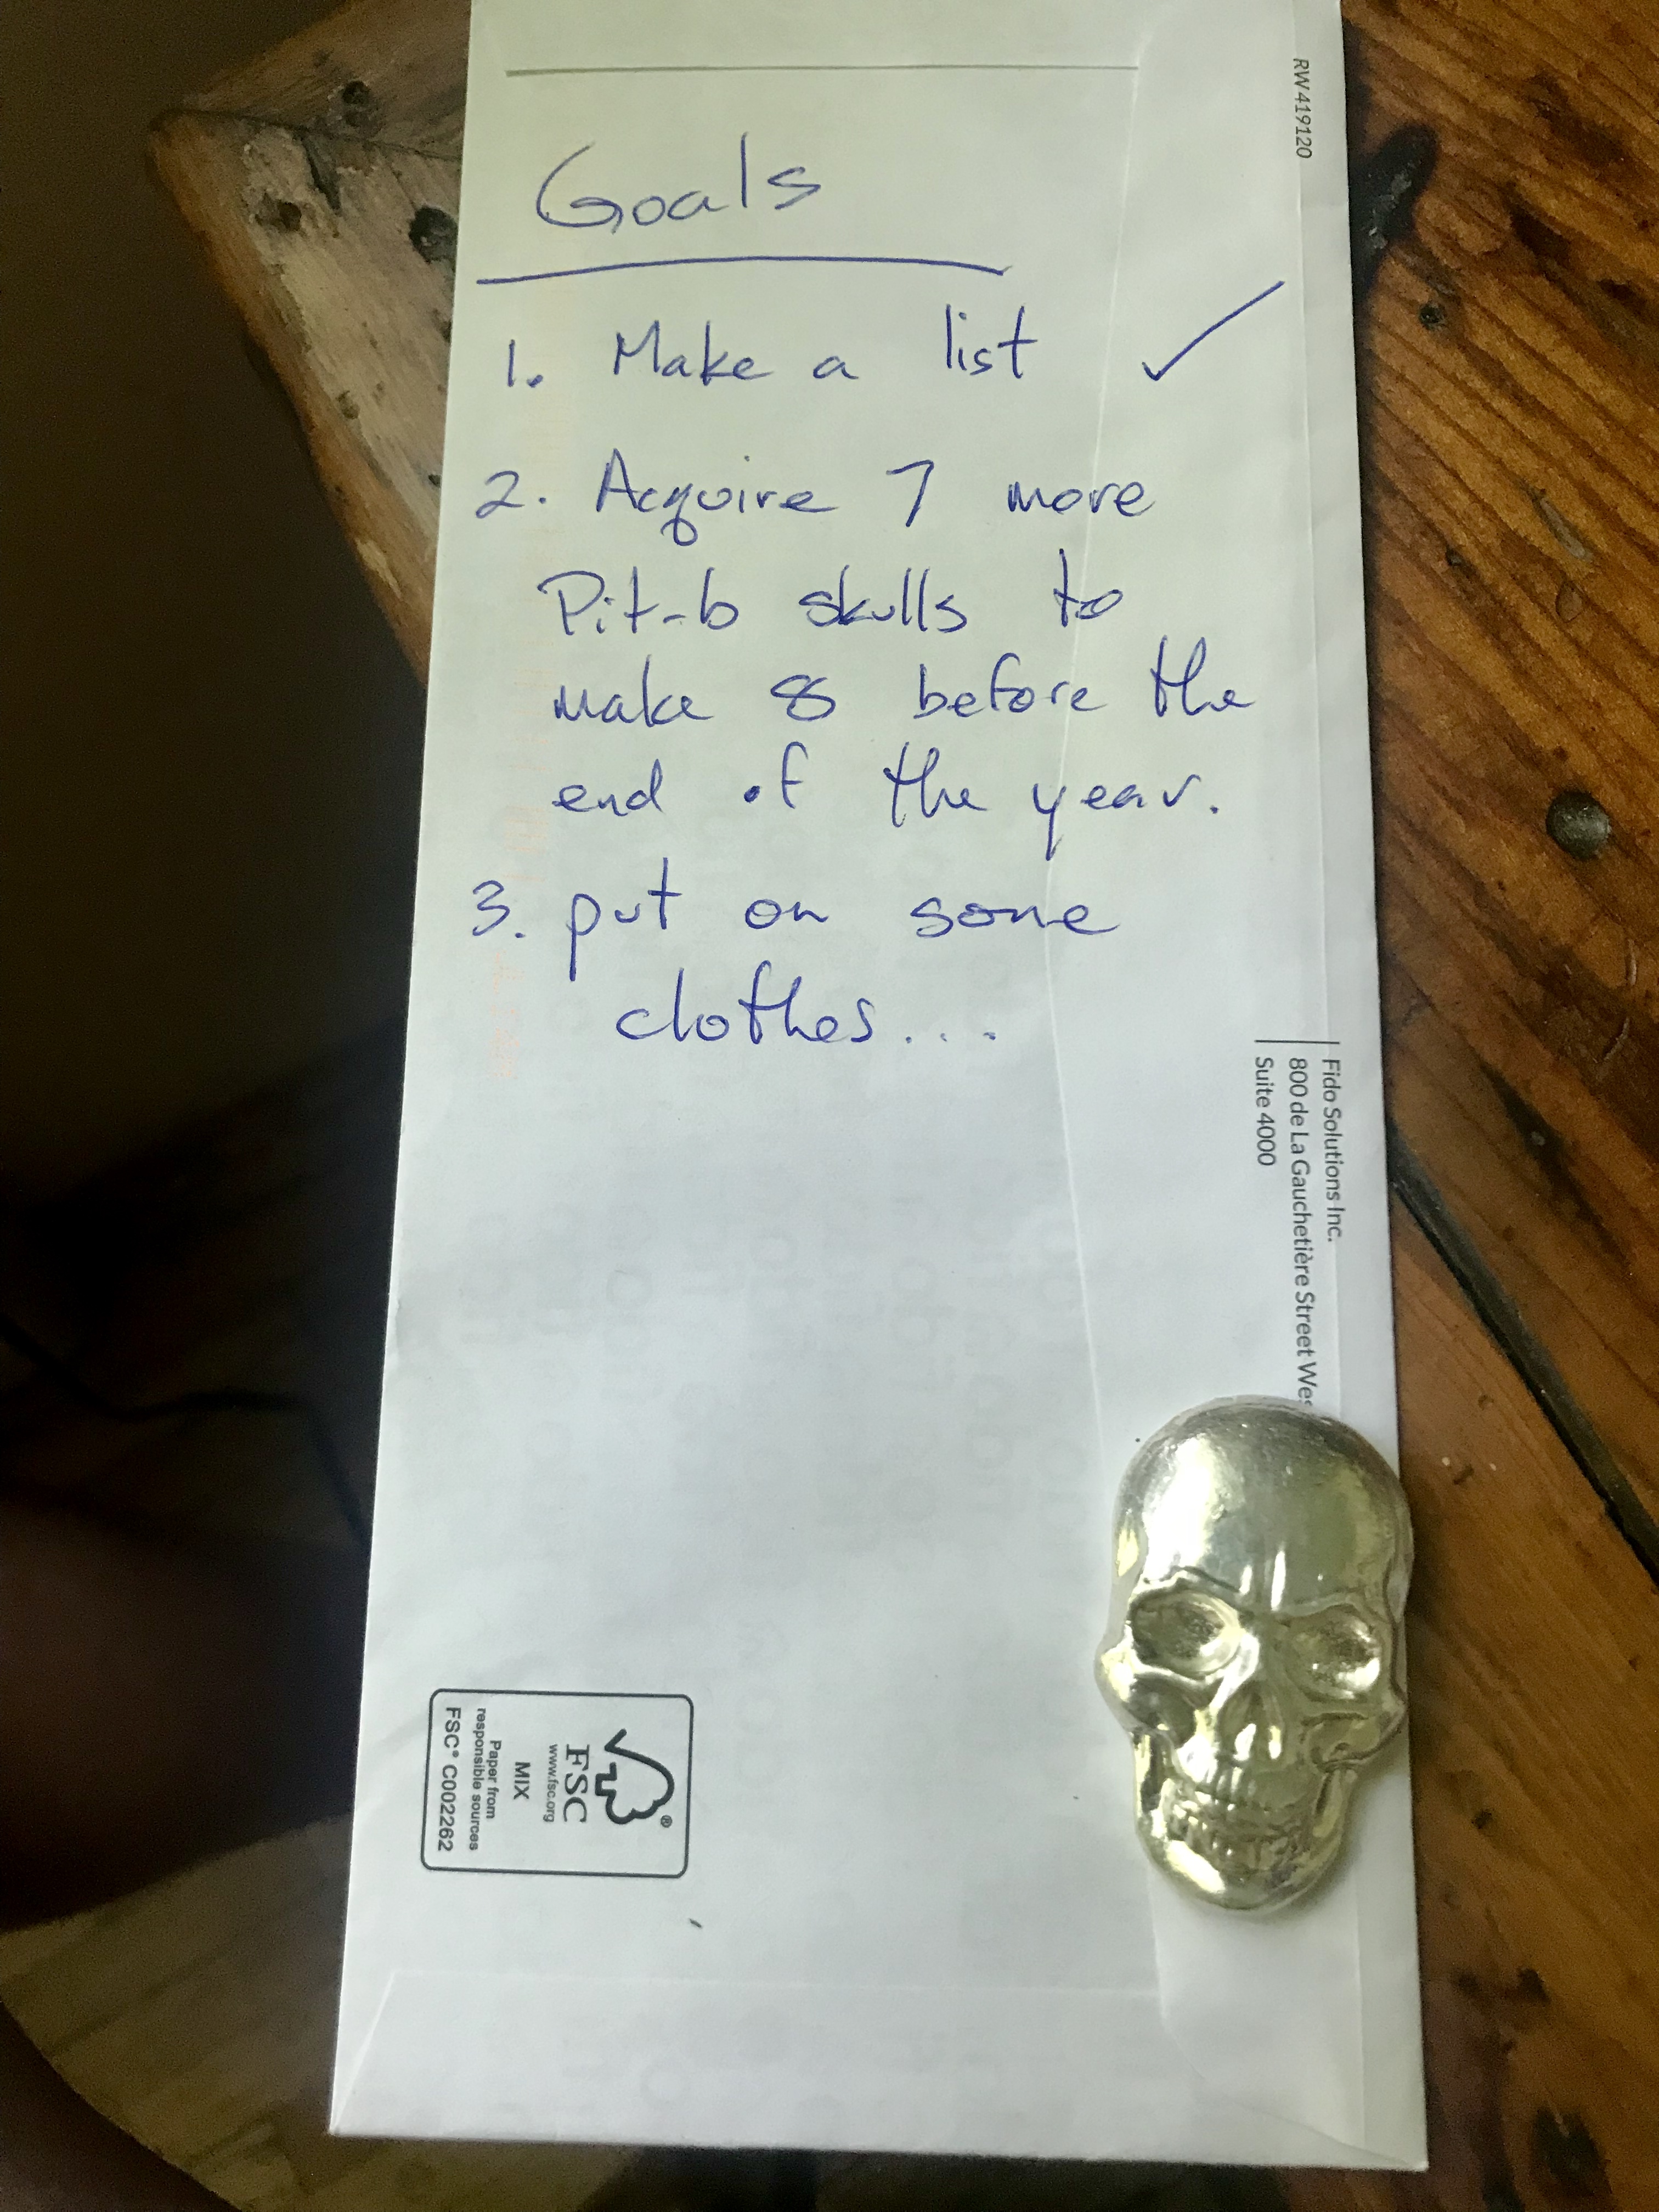 RW419120
Goals
1. Make a list ✓
2. Acquire 7 more
Pit-b skulls to
make 8 before the
end of the year.
3. put on some
clothes....
Fido Solutions Inc.
800 de La Gauchetière Street Wes
Suite 4000
®
FSC
www.fsc.org
MIX
Paper from
responsible sources
FSC® C002262